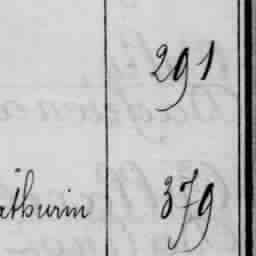 291
athurin 379